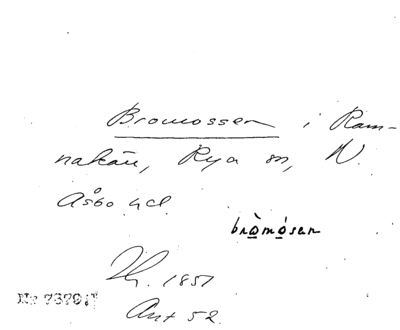 Bromossen i Ram-
nakärr, Rya sn, N.
Åsbo hd
bròmósen
1851
Ant 52